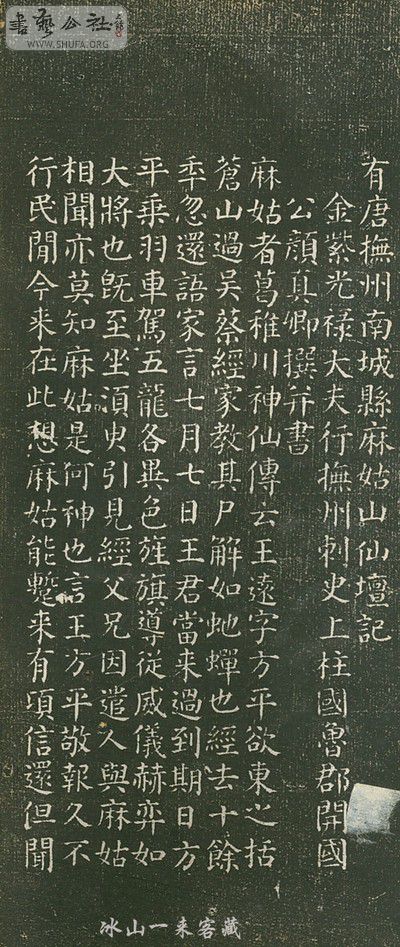 書藝公社
WWW.SHUFA.ORG
有唐撫州南城縣麻姑山仙壇記
金紫光禄大夫行撫州刺史上柱國魯郡開國
公顔真卿撰并書
麻姑者葛稚川神仙傳云王遠字方平欲東之括
蒼山過吴蔡經家教其尸解如虵蟬也經去十餘
秊忽還語家言七月七日王君當来過到期日方
平乗羽車駕五龍各異色旌旗導従威儀赫弈如
大將也既至坐湏臾引見經父兄因遣人與麻姑
相聞亦莫知麻姑是何神也言王方平敬報久不
行民間今来在此想麻姑能蹔来有頃信還但聞
冰山一来客藏